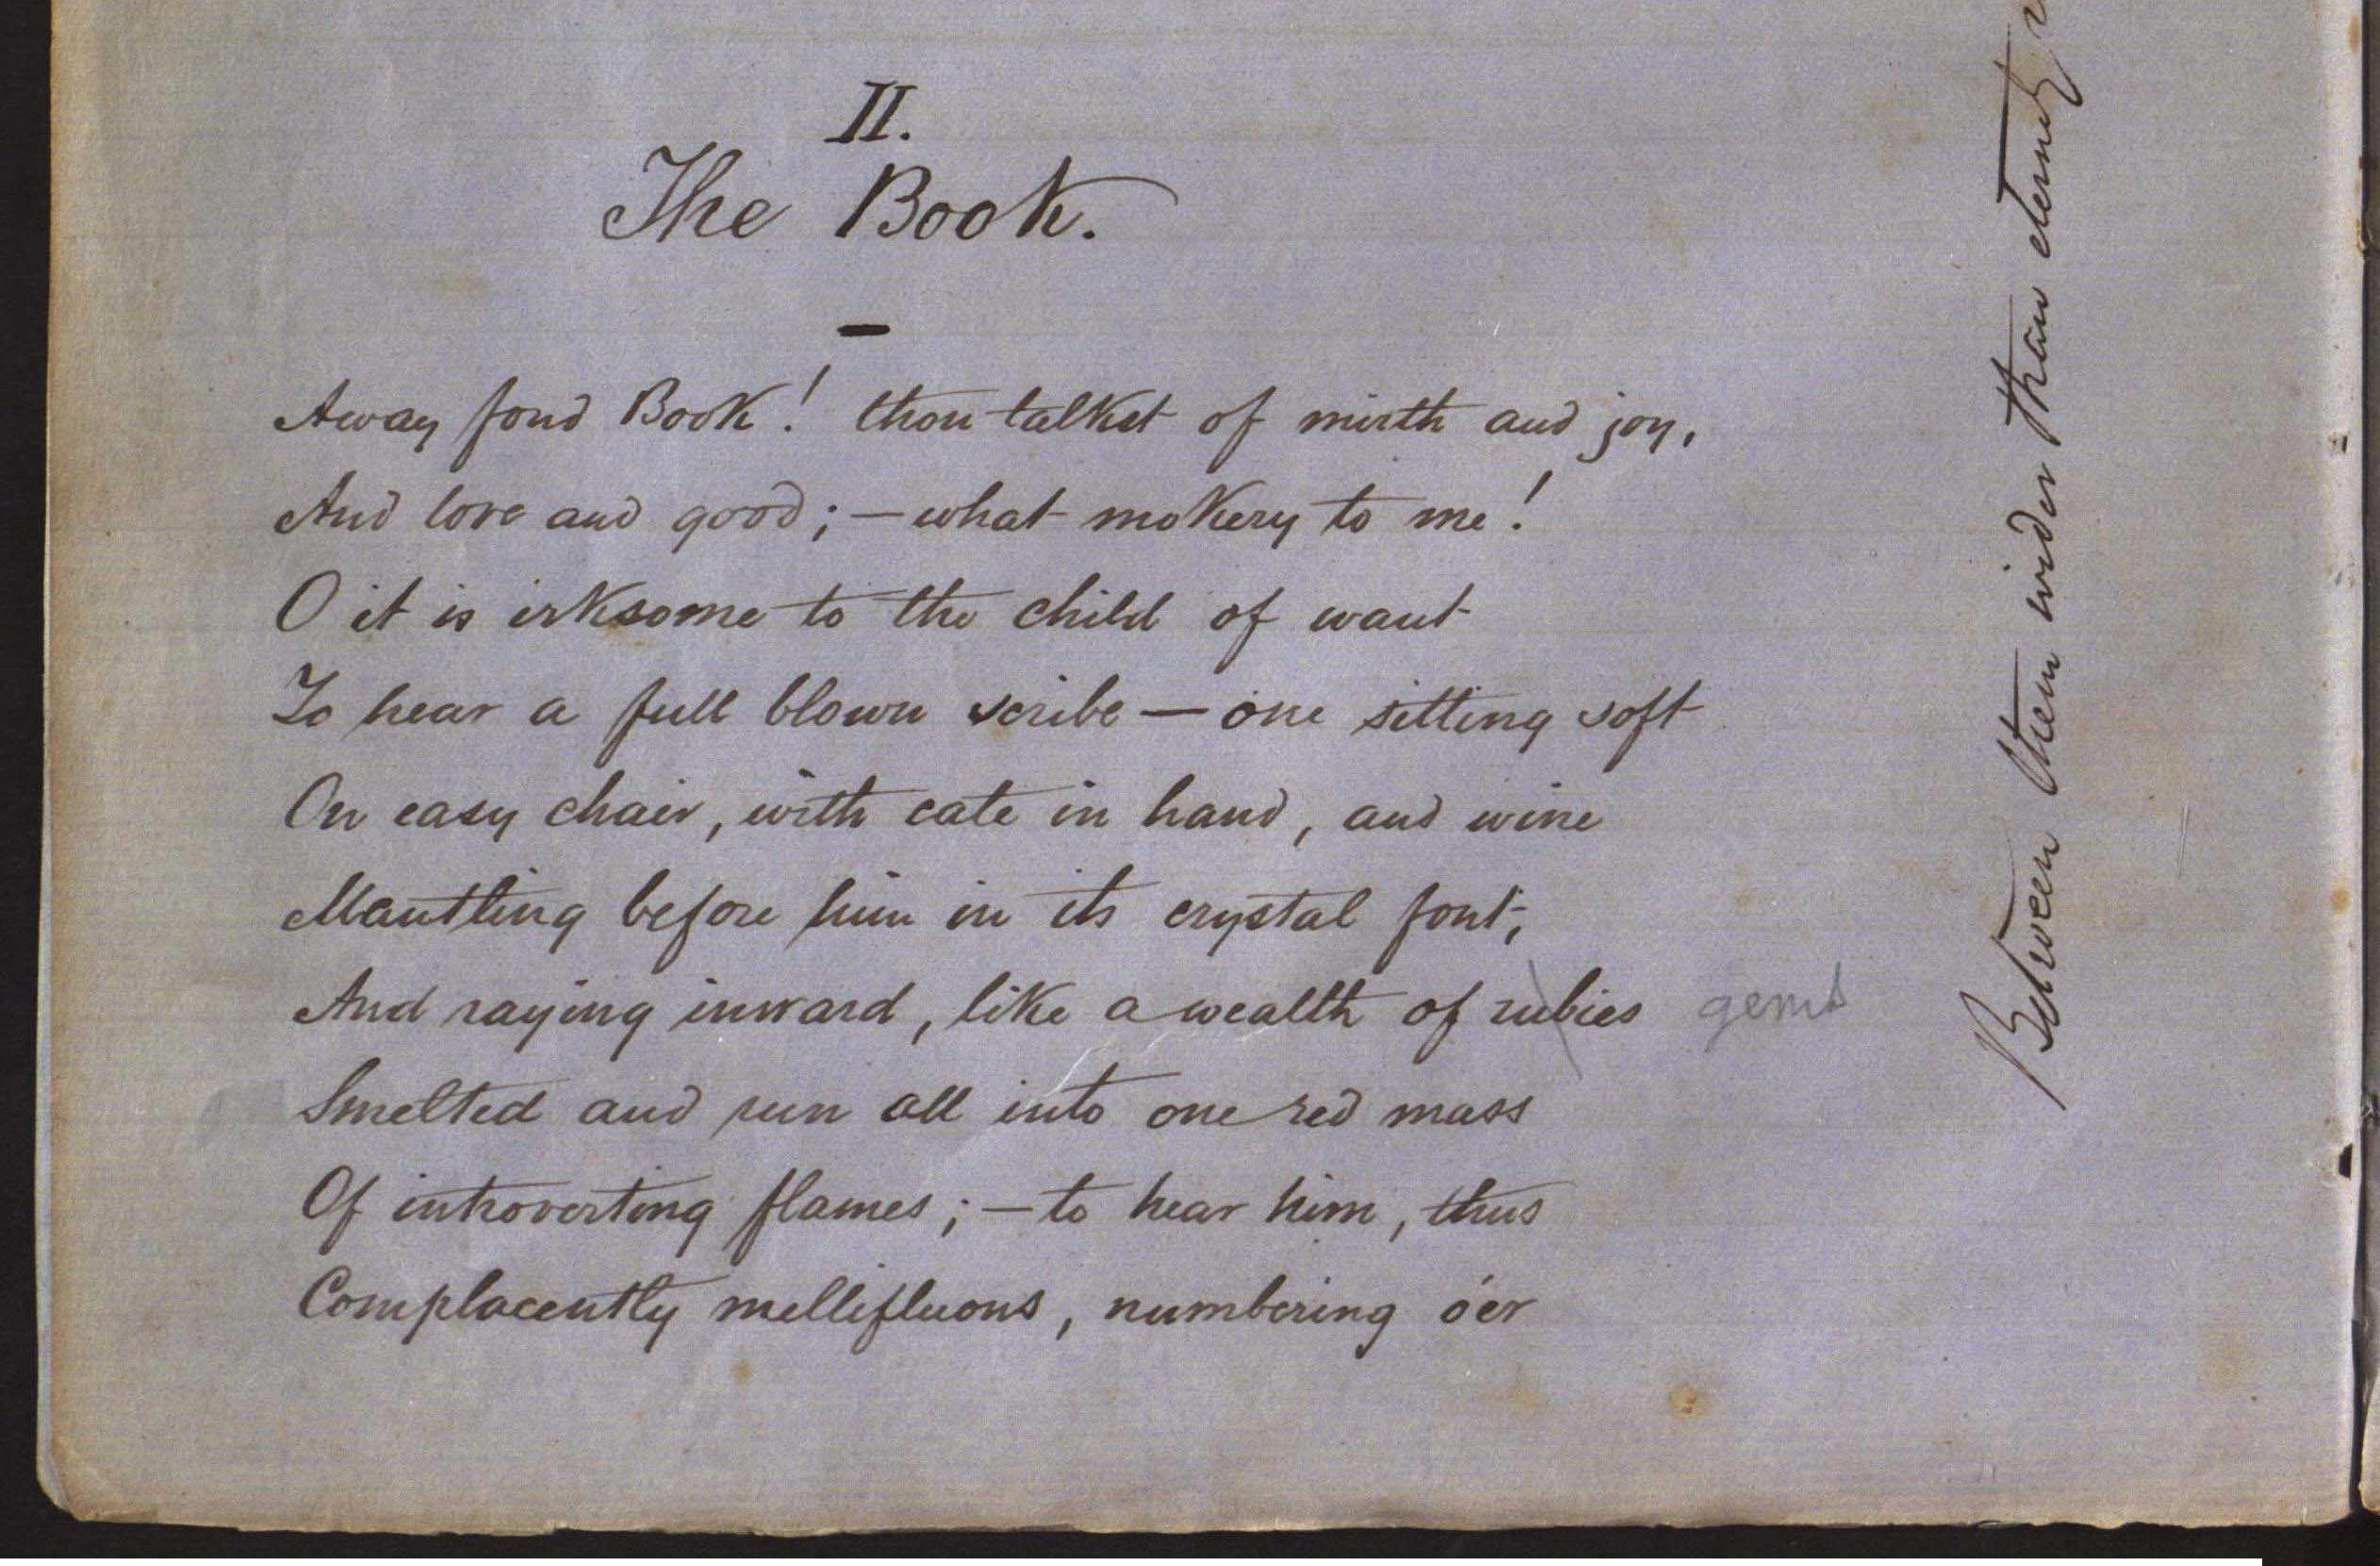 II.
The Book.
—
Away fond Book! thou talkst of mirth and joy,
And love and good; — what mokery to me!
O it is irksome to the child of want
To hear a full blown scribe — one sitting soft
On easy chair, with cate in hand, and wine
Mantling before him in its crystal font,
And raying inward, like a wealth of rubies gems
Smelted and run all into one red mass
Of introverting flames; — to hear him, thus
Complacently mellifluous, numbering o'er
Between them wider than eternity